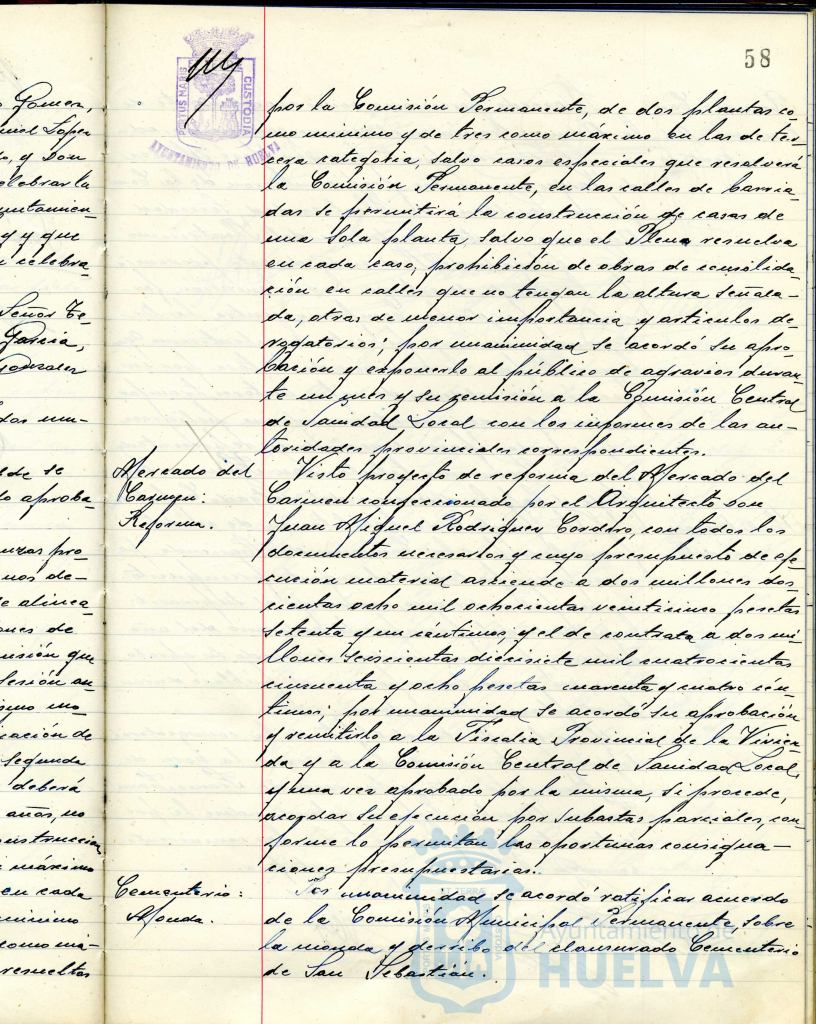 58
PORTUS MARIS
CUSTODIA
AYUNTAMIENTO DE HUELVA
Gomez,
López
y Don
celebrar la
y que
celebra
Señor Te-
García,
Gonzalez
se
aproba-
pro-
nos de-
alinea-
ones de
que
sesión an-
cación de
segunda
deberá
años, no
construccion
máximo
en cada
mínimo
como má-
resueltos
por la Comisión Permanente, de dos plantas co-
mo minimo y de tres como máximo en las de ter-
cera categoria, salvo casos especiales que resolverá
la Comisión Permanente, en las calles de barria-
das se permitirá la construcción de casas de
una sola planta, salvo que el Pleno resuelva
en cada caso, prohibición de obras de consolida-
ción en calles que no tengan la altura señala-
da, otras de menor importancia y articulos de-
rogatorios; por unanimidad se acordó su apro-
bación y exponerlo al público de agravios duran-
te un mes y su remisión a la Comisión Central
de Sanidad Local con los informes de las au-
toridades provinciales correspondientes.
Mercado del
Carmen:
Reforma.
Visto proyecto de reforma del Mercado del
Carmen confeccionado por el Arquitecto Don
Juan Miguel Rodriguez Cordero, con todos los
documentos necesarios y cuyo presupuesto de eje-
cución material asciende a dos millones dos-
cientas ocho mil ochocientas veinticinco pesetas
setenta y un céntimos, y el de contrata a dos mi-
llones seiscientas diecisiete mil cuatrocientas
cincuenta y ocho pesetas cuarenta y cuatro cén-
timos; por unanimidad se acordó su aprobación
y remitirlo a la Fiscalia Provincial de la Vivien-
da y a la Comisión Central de Sanidad Local,
y una vez aprobado por la misma, si procede,
acordar su ejecución por subastas parciales, con-
forme lo permitan las oportunas consigna-
ciones presupuestarias.
Cementerio:
Monda.
Por unanimidad se acordó ratificar acuerdo
de la Comisión Municipal Permanente, sobre
la monda y derribo del clausurado Cementerio
de San Sebastián.
Ayuntamiento de
HUELVA